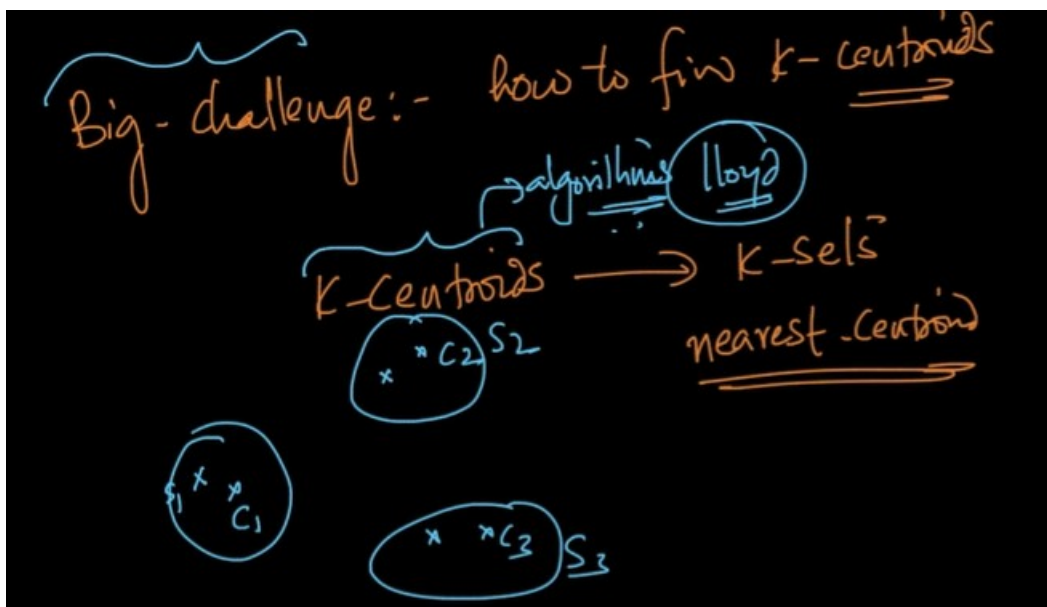 Big - challenge :- how to find K- centroids
algorithms lloyd
K-Centroids → K-sets
nearest-Centroid
C2 S2
S1 C1
C3 S3